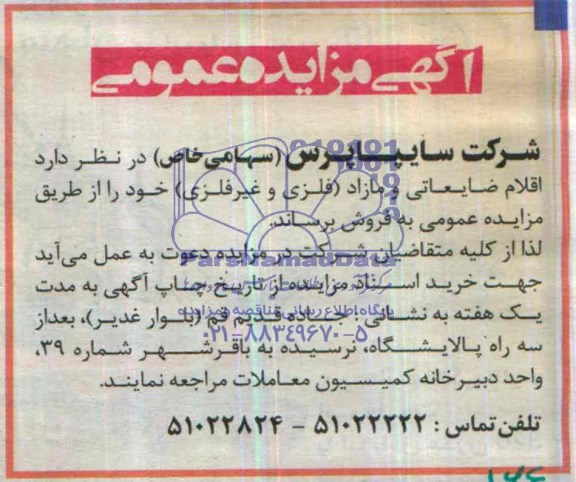 آگهی مزایده عمومی
شرکت سایپاپرس (سهامی خاص) در نظر دارد
اقلام ضایعاتی و مازاد (فلزی و غیرفلزی) خود را از طریق
مزایده عمومی به فروش برساند.
لذا از کلیه متقاضیان شرکت در مزایده دعوت به عمل می‌آید
جهت خرید اسناد مزایده از تاریخ چاپ آگهی به مدت
یک هفته به نشانی: جاده قدیم قم (بلوار غدیر)، بعداز
سه راه پالایشگاه، نرسیده به باقرشهر شماره ۳۹،
واحد دبیرخانه کمیسیون معاملات مراجعه نمایند.
تلفن تماس: ۵۱۰۲۲۲۲۲ - ۵۱۰۲۲۸۲۴
ParsNamadData
پایگاه اطلاع رسانی مناقصه و مزایده
۰۲۱-۸۸۳۴۹۶۷۰-۵